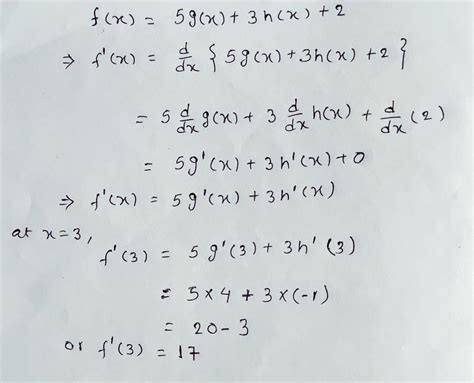 f(x) = 5g(x) + 3h(x) + 2
⇒ f'(x) = d/dx { 5g(x) + 3h(x) + 2 }
= 5 d/dx g(x) + 3 d/dx h(x) + d/dx (2)
= 5g'(x) + 3h'(x) + 0
⇒ f'(x) = 5g'(x) + 3h'(x)
at x=3,
f'(3) = 5g'(3) + 3h'(3)
= 5 × 4 + 3 × (-1)
= 20 - 3
or f'(3) = 17